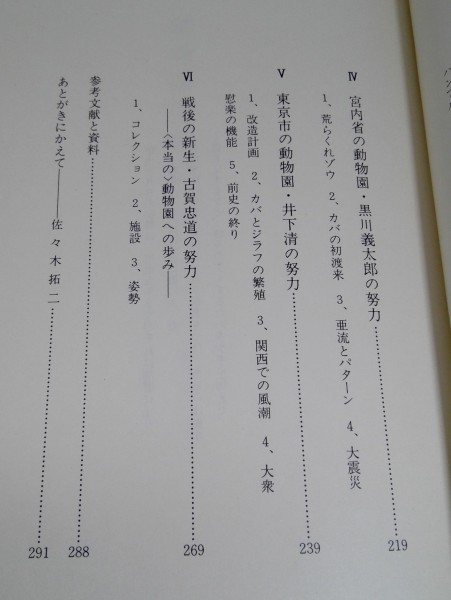 Ⅳ 宮内省の動物園・黒川義太郎の努力……219
1、荒らくれゾウ 2、カバの初渡来 3、亜流とパターン 4、大震災
Ⅴ 東京市の動物園・井下清の努力……239
1、改造計画 2、カバとジラフの繁殖 3、関西での風潮 4、大衆
慰楽の機能 5、前史の終り
Ⅵ 戦後の新生・古賀忠道の努力……269
——〈本当の〉動物園への歩み——
1、コレクション 2、施設 3、姿勢
参考文献と資料……288
あとがきにかえて——佐々木拓二……291